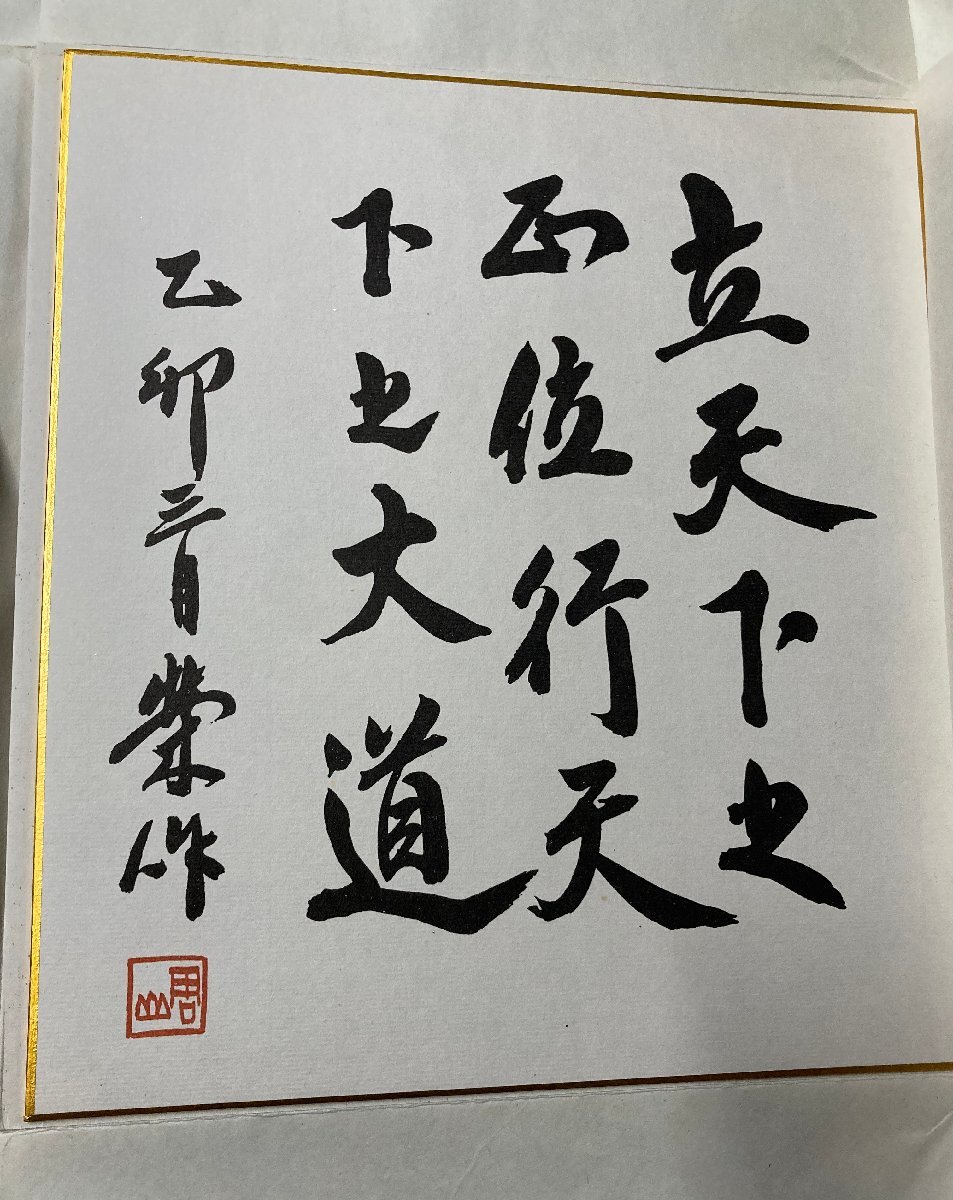 立天下之
正位行天
下之大道
乙卯三月榮作
周山